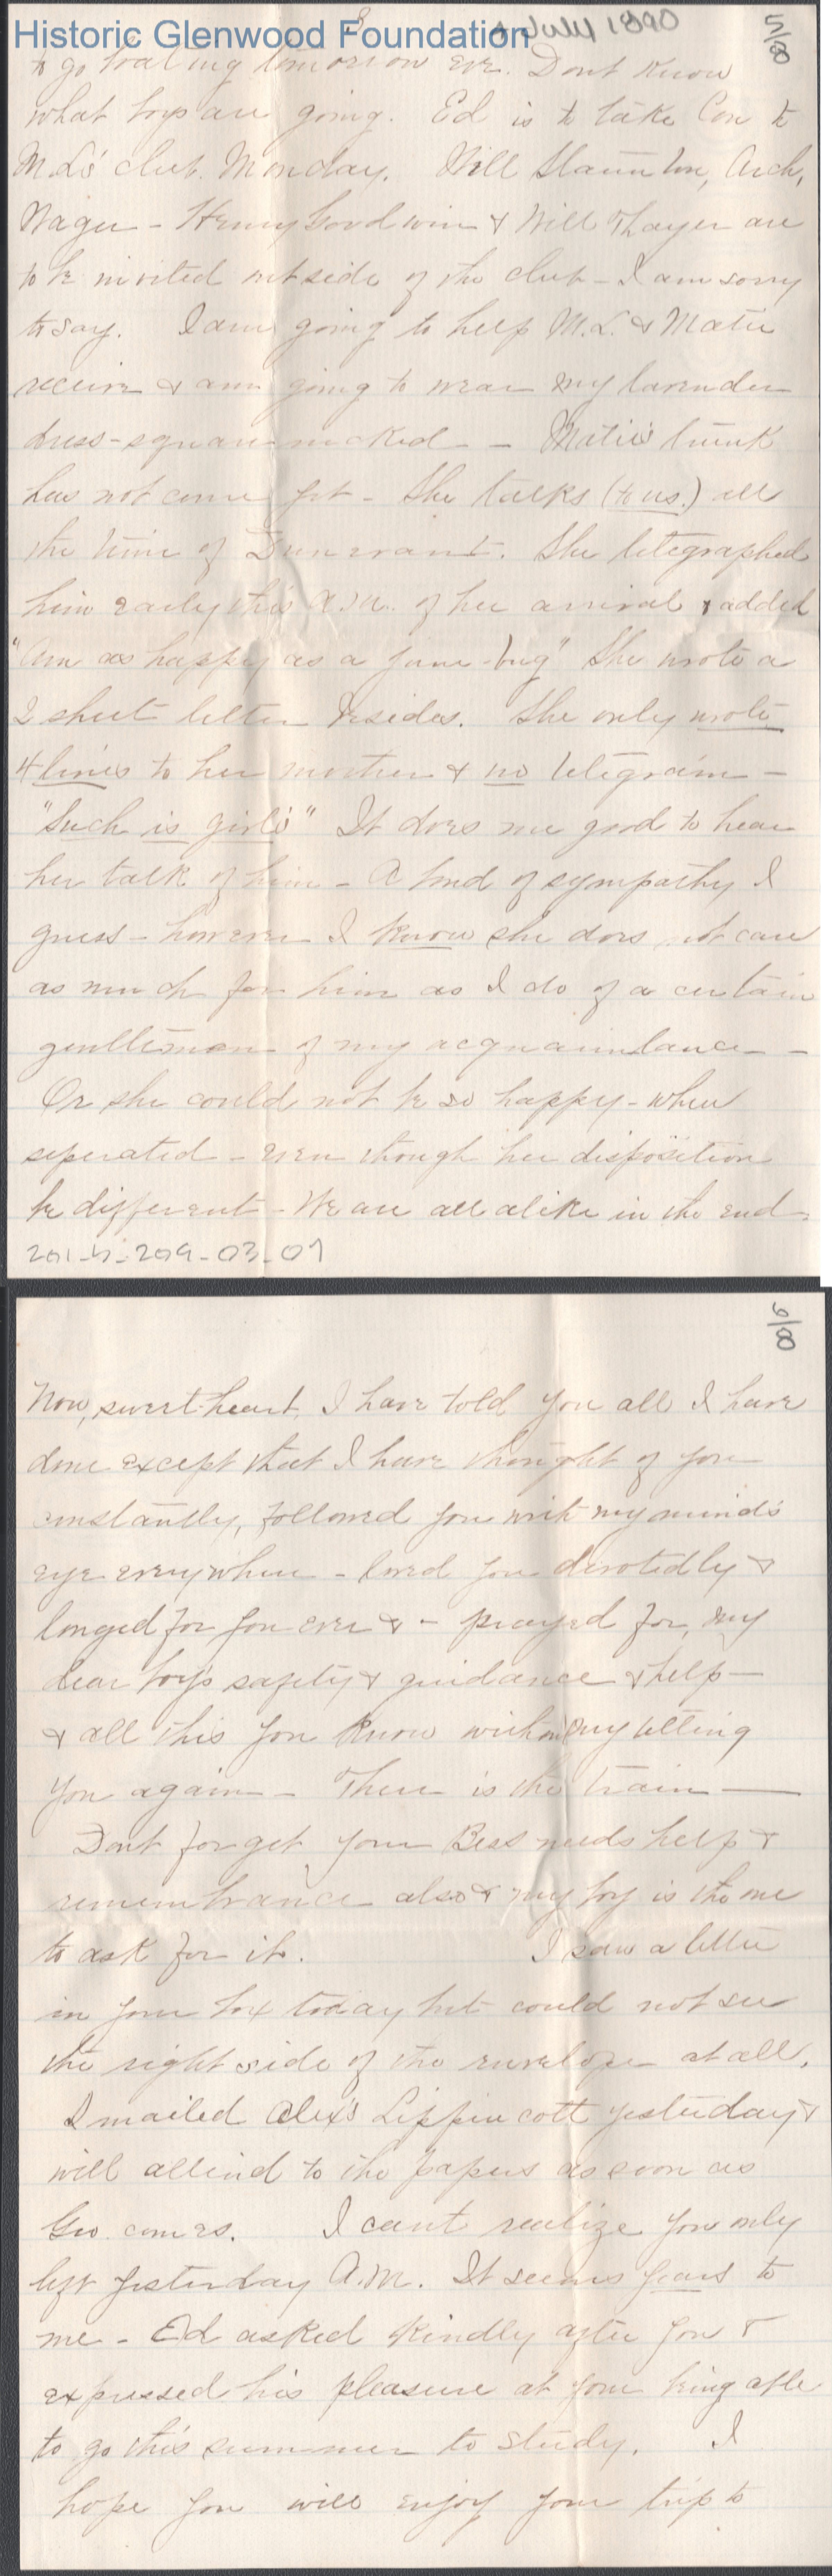 Historic Glenwood Foundation
3
July 1890
5/8
to go boating tomorrow eve. Dont know
what boys are going. Ed is to take Con to
M.L's club. Monday. Will Staunton, Arch,
Wager - Henry Goodwin & Will Thayer are
to be invited outside of the club - I am sorry
to say. I am going to help M.L. & Matie
receive & am going to wear my lavender
dress - square necked - - Matie's trunk
has not come yet - She talks (to us.) all
the time of . She telegraphed
him early this A.M. of her arrival & added
"Am as happy as a june-bug" She wrote a
2 sheet letter besides. She only wrote
4 lines to her mother & no telegram -
"Such is girls" It does me good to hear
her talk of him - A bond of sympathy I
guess - however I know she does not care
as much for him as I do of a certain
gentleman of my acquaintance - -
Or she could not be so happy - when
seperated - even though her disposition
be different - We are all alike in the end.
201-b-209-03-07
6/8
Now, sweetheart, I have told you all I have
done except that I have thought of you
constantly, followed you with my mind's
eye everywhere - loved you devotedly &
longed for you ever & - prayed for, my
dear boy's safety & guidance & help -
& all this you know without my telling
you again - There is the train -
Dont forget your Bess needs help &
remembrance also & my boy is the one
to ask for it. I saw a letter
in your box today but could not see
the right side of the envelope at all.
I mailed Alex's Lippincott yesterday &
will attend to the papers as soon as
Geo. comes. I can't realize you only
left yesterday A.M. It seems years to
me - Ed asked kindly after you &
expressed his pleasure at your being able
to go this summer to study. I
hope you will enjoy your trip to